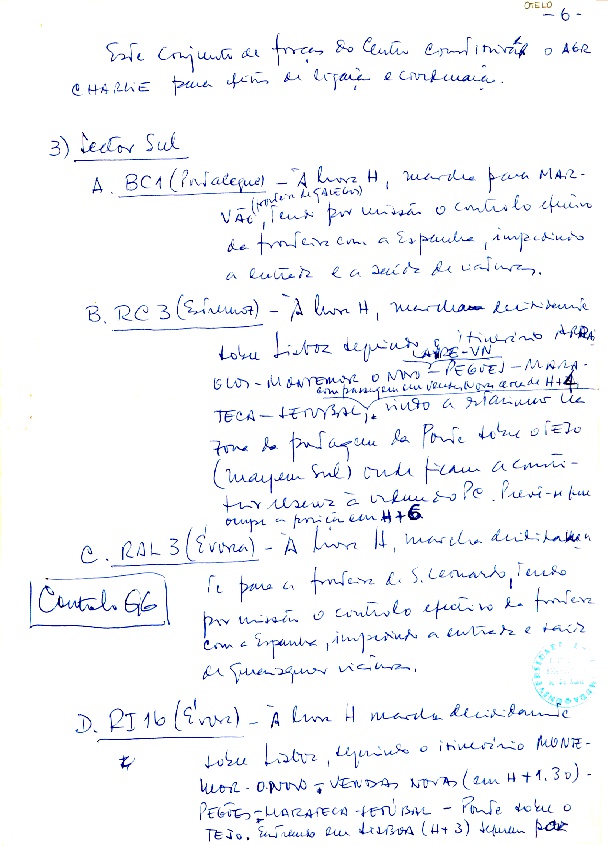 OTELO
- 6 -
Este conjunto de forças do Centro constituirá o AGR
CHARLIE para efeitos de ligação e coordenação.
3) Sector Sul
A. BC1 (Portalegre) - À hora H, marcha para MAR-
(fronteira de GALEGOS)
VÃO, tendo por missão o controlo efectivo
da fronteira com a Espanha, impedindo
a entrada e a saída de viaturas.
B. RC 3 (Estremoz) - À hora H, marcha decididamente
sobre Lisboa seguindo o itinerário ARRAI
LAVRE-VN
OLOS-MONTEMOR O NOVO-PEGÕES-MARA-
com passagem em Vendas Novas cerca de H+4
TECA-SETÚBAL, vindo a estacionar na
zona da portagem da Ponte sobre o TEJO
(margem Sul) onde ficam a consti-
tuir reserva à ordem do PC. Prevê-se que
ocupe a posição em H+6
C. RAL 3 (Évora) - À hora H, marcha decididamen
te para a fronteira de S. Leonardo, tendo
Controlo GG
por missão o controlo efectivo da fronteira
com a Espanha, impedindo a entrada e saída
de quaisquer viaturas.
D. RI 16 (Évora) - À hora H marcha decididamente
sobre Lisboa, seguindo o itinerário MONTE-
MOR-O-NOVO-VENDAS NOVAS (em H+1.30)-
PEGÕES-MARATECA-SETÚBAL - Ponte sobre o
TEJO. Entrando em LISBOA (H+3) seguem por